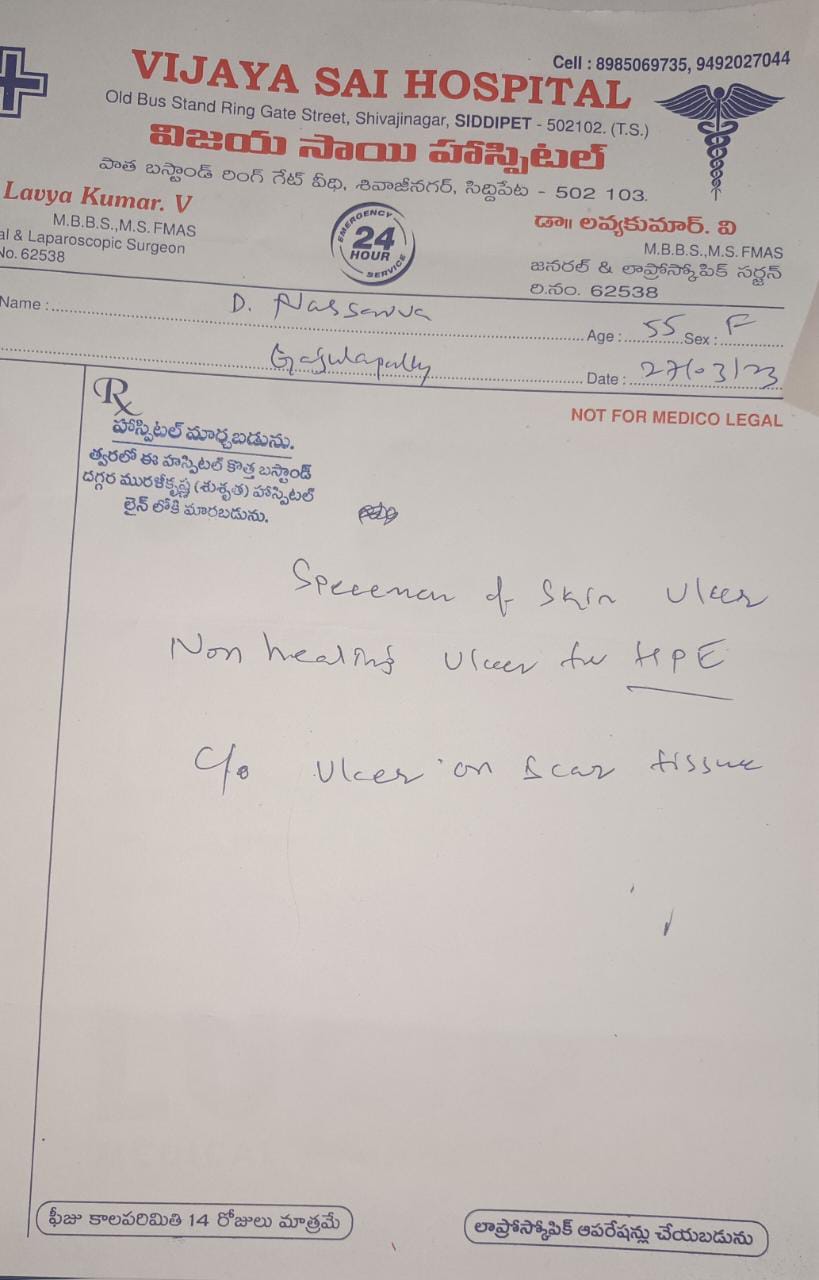 Cell : 8985069735, 9492027044
VIJAYA SAI HOSPITAL
Old Bus Stand Ring Gate Street, Shivajinagar, SIDDIPET - 502102. (T.S.)
విజయ సాయి హాస్పిటల్
పాత బస్టాండ్ రింగ్ గేట్ వీధి, శివాజీనగర్, సిద్దిపేట - 502 103.
Lavya Kumar. V
M.B.B.S.,M.S. FMAS
al & Laparoscopic Surgeon
No. 62538
EMERGENCY
24
HOUR
SERVICE
డా॥ లవ్యకుమార్. వి
M.B.B.S.,M.S. FMAS
జనరల్ & లాప్రోస్కోపిక్ సర్జన్
రి.నం. 62538
Name : D.
Age : 55 Sex : F
Date : 27/03/23
Rx
NOT FOR MEDICO LEGAL
హాస్పిటల్ మార్చబడును.
త్వరలో ఈ హస్పిటల్ కొత్త బస్టాండ్
దగ్గర మురళీకృష్ణ (శుశృత) హాస్పిటల్
లైన్ లోకి మారబడును.
Speceman of Skin Ulcer
Non healing Ulcer for HPE
C/o Ulcer on Scar tissue
ఫీజు కాలపరిమితి 14 రోజులు మాత్రమే
లాప్రోస్కోపిక్ ఆపరేషన్లు చేయబడును